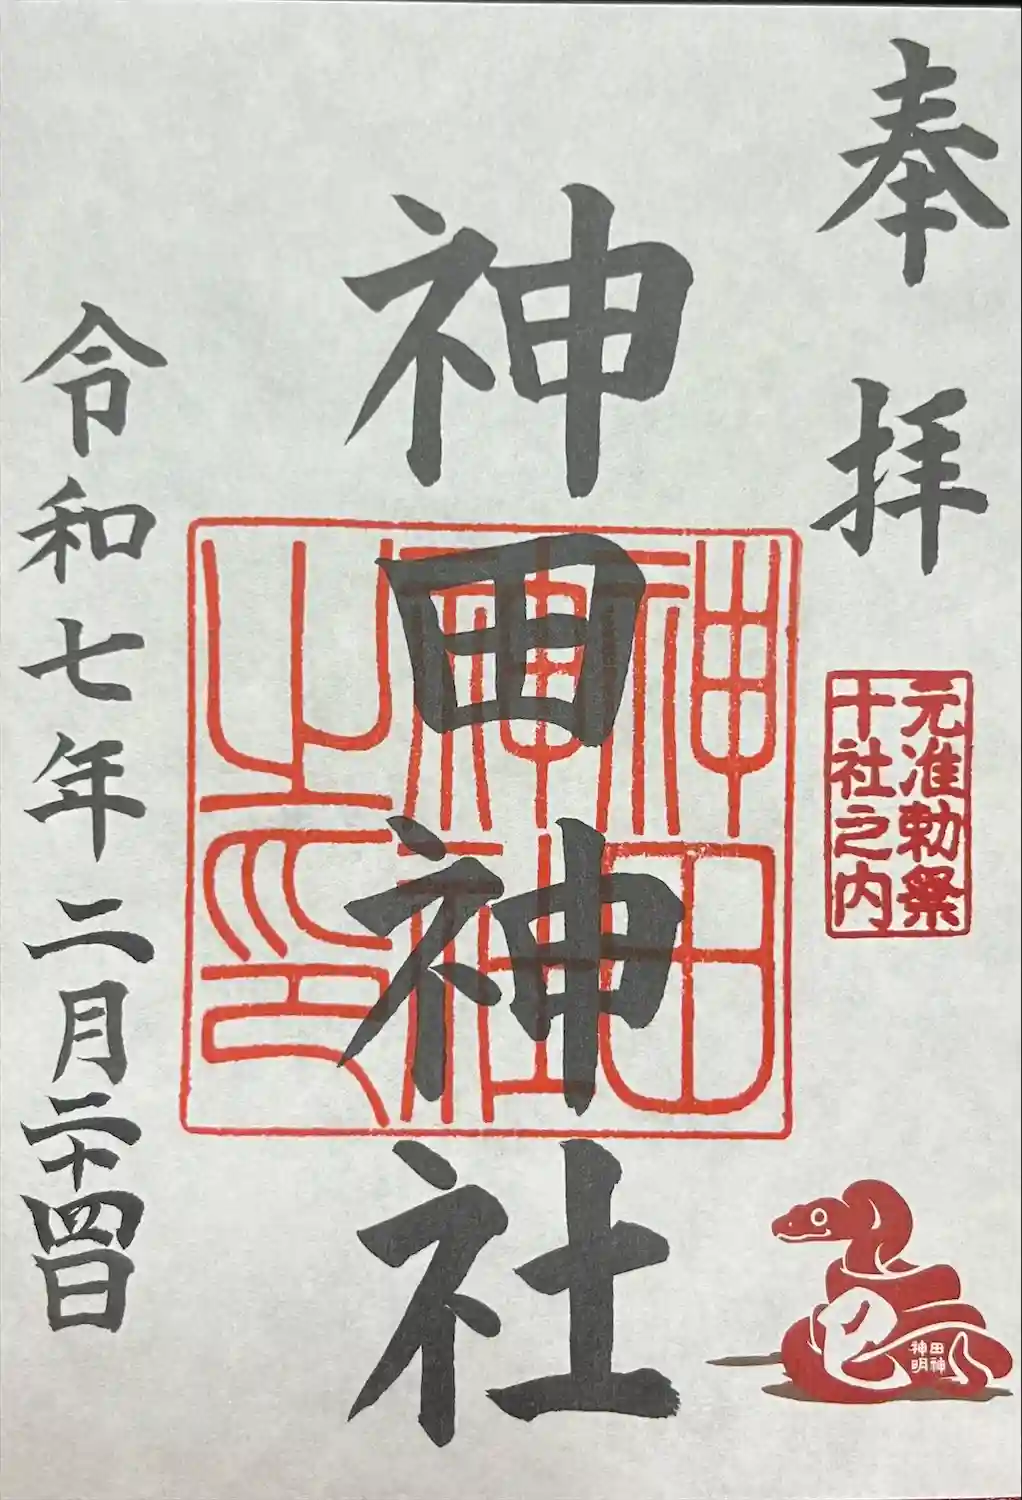 奉拝
元准勅祭
十社之内
神田神社
神田
神社
之印
令和七年二月二十四日
巳
神田
明神